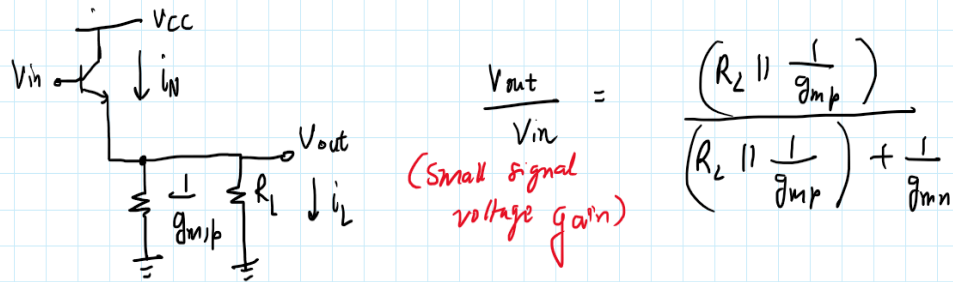 VCC
Vin
iN
Vout
1
gm,p
RL
iL
Vout
Vin
=
(RL || 1/gmp)
(RL || 1/gmp) + 1/gmn
(Small signal
voltage gain)